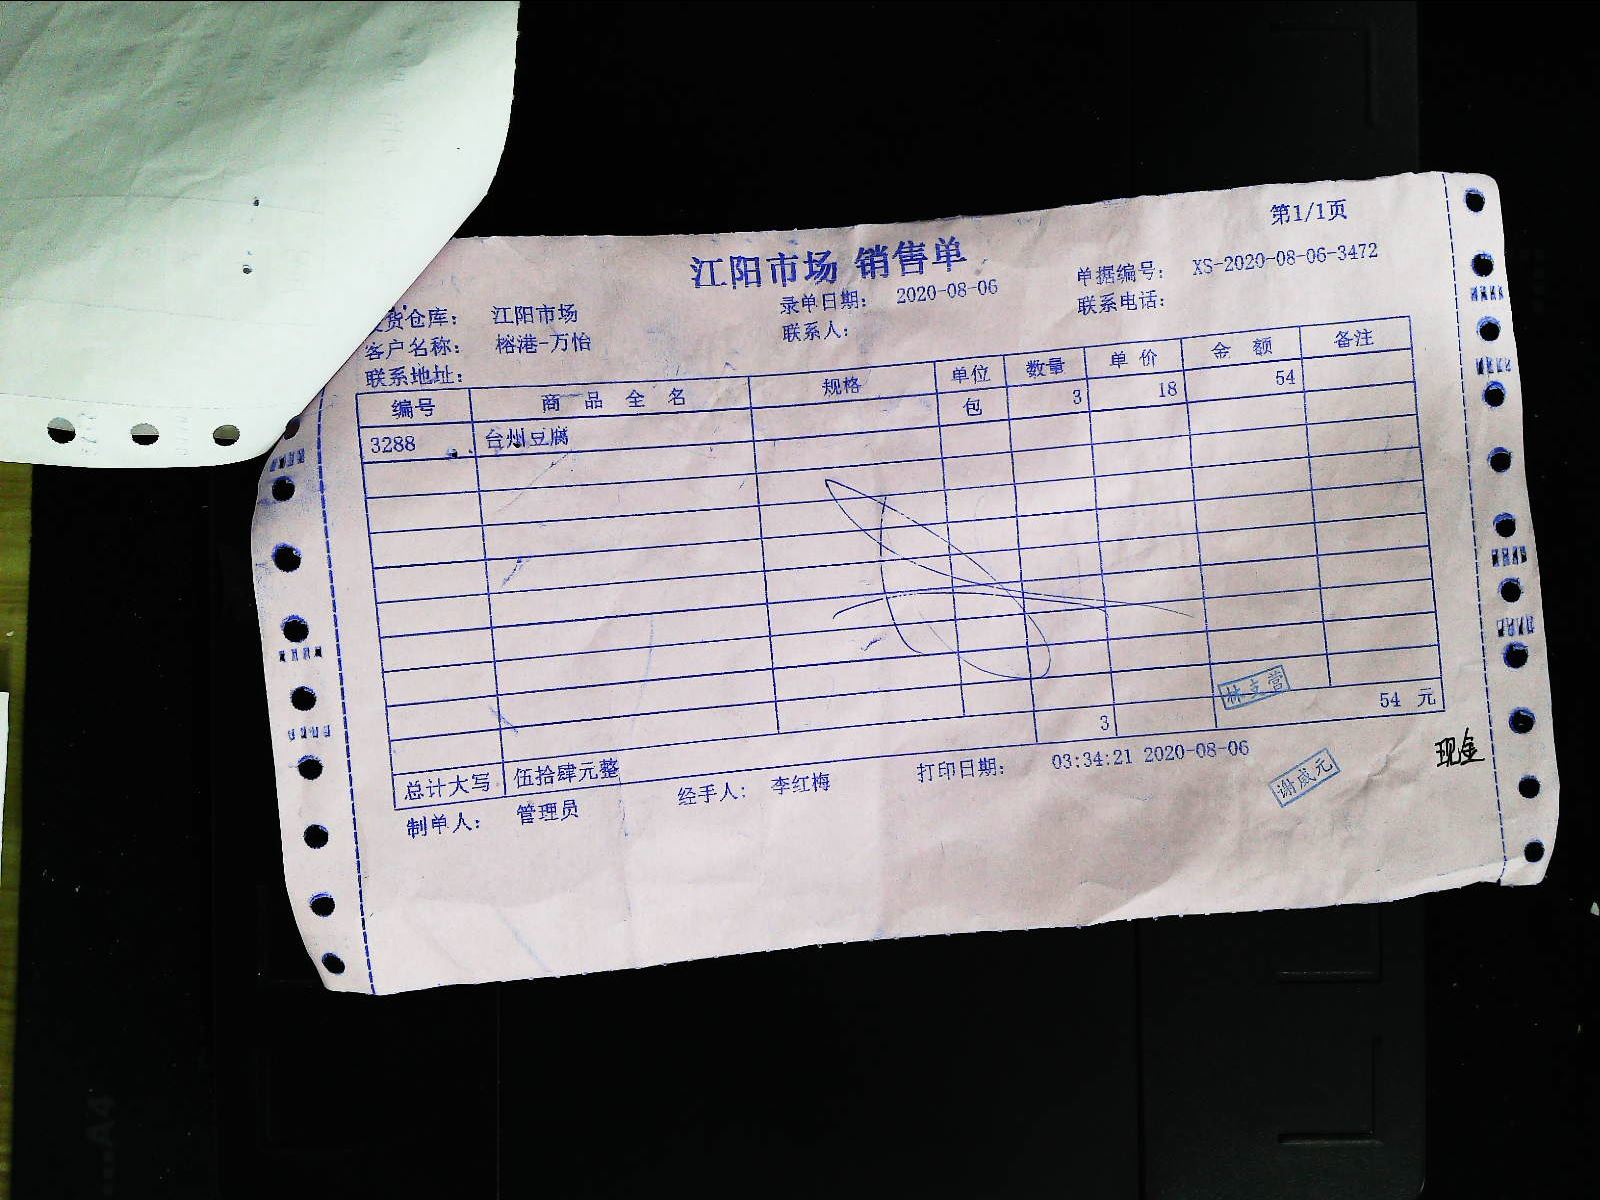 第1/1页
江阳市场 销售单
发货仓库： 江阳市场 录单日期： 2020-08-06 单据编号： XS-2020-08-06-3472
客户名称： 榕港-万怡 联系人： 联系电话：
联系地址：
编号 商 品 全 名 规格 单位 数量 单 价 金 额 备注
3288 台州豆腐 包 3 18 54
总计大写 伍拾肆元整 3 54 元
制单人： 管理员 经手人： 李红梅 打印日期： 03:34:21 2020-08-06
林支营
谢咸元
现金
A4